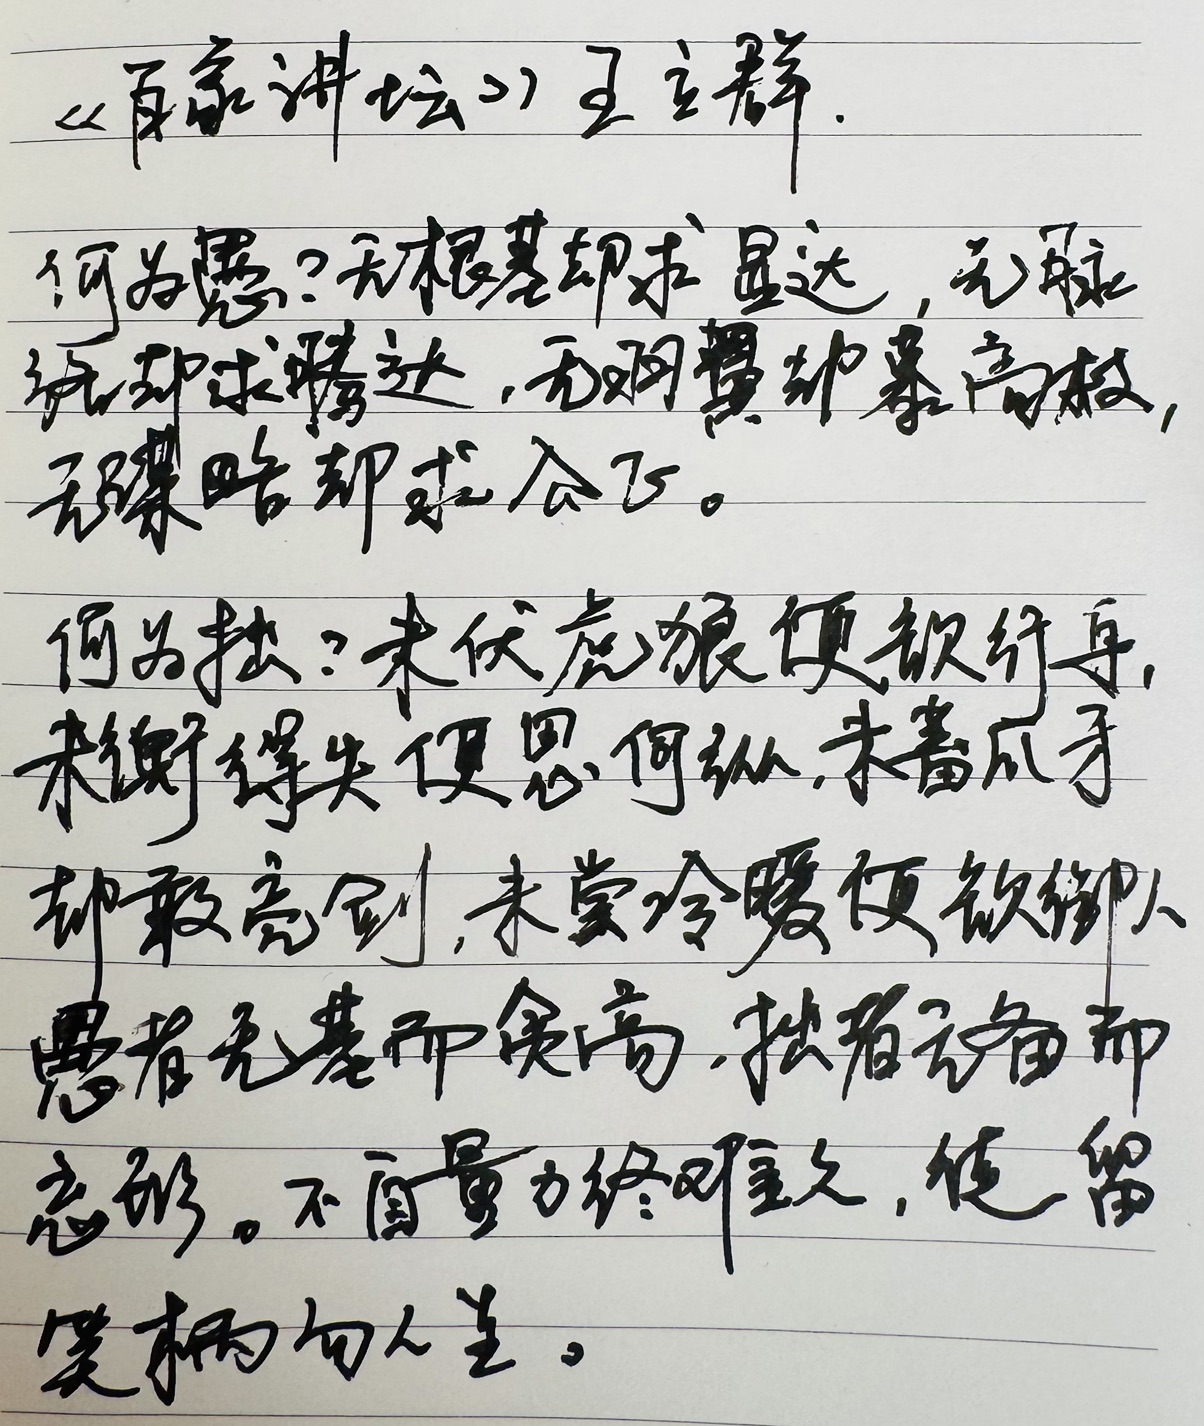 《百家讲坛》王立群.
何为愚?无根基却求显达,无脉
络却求腾达,无羽翼却慕高枝,
无谋略却求公正。
何为拙?未伏虎狼便欲行舟,
未衡得失便思何纵,未蓄爪牙
却敢亮剑,未尝冷暖便欲御人
愚者无基而贪高,拙者无备而
忘形。不自量力终难久,徒留
笑柄向人生。